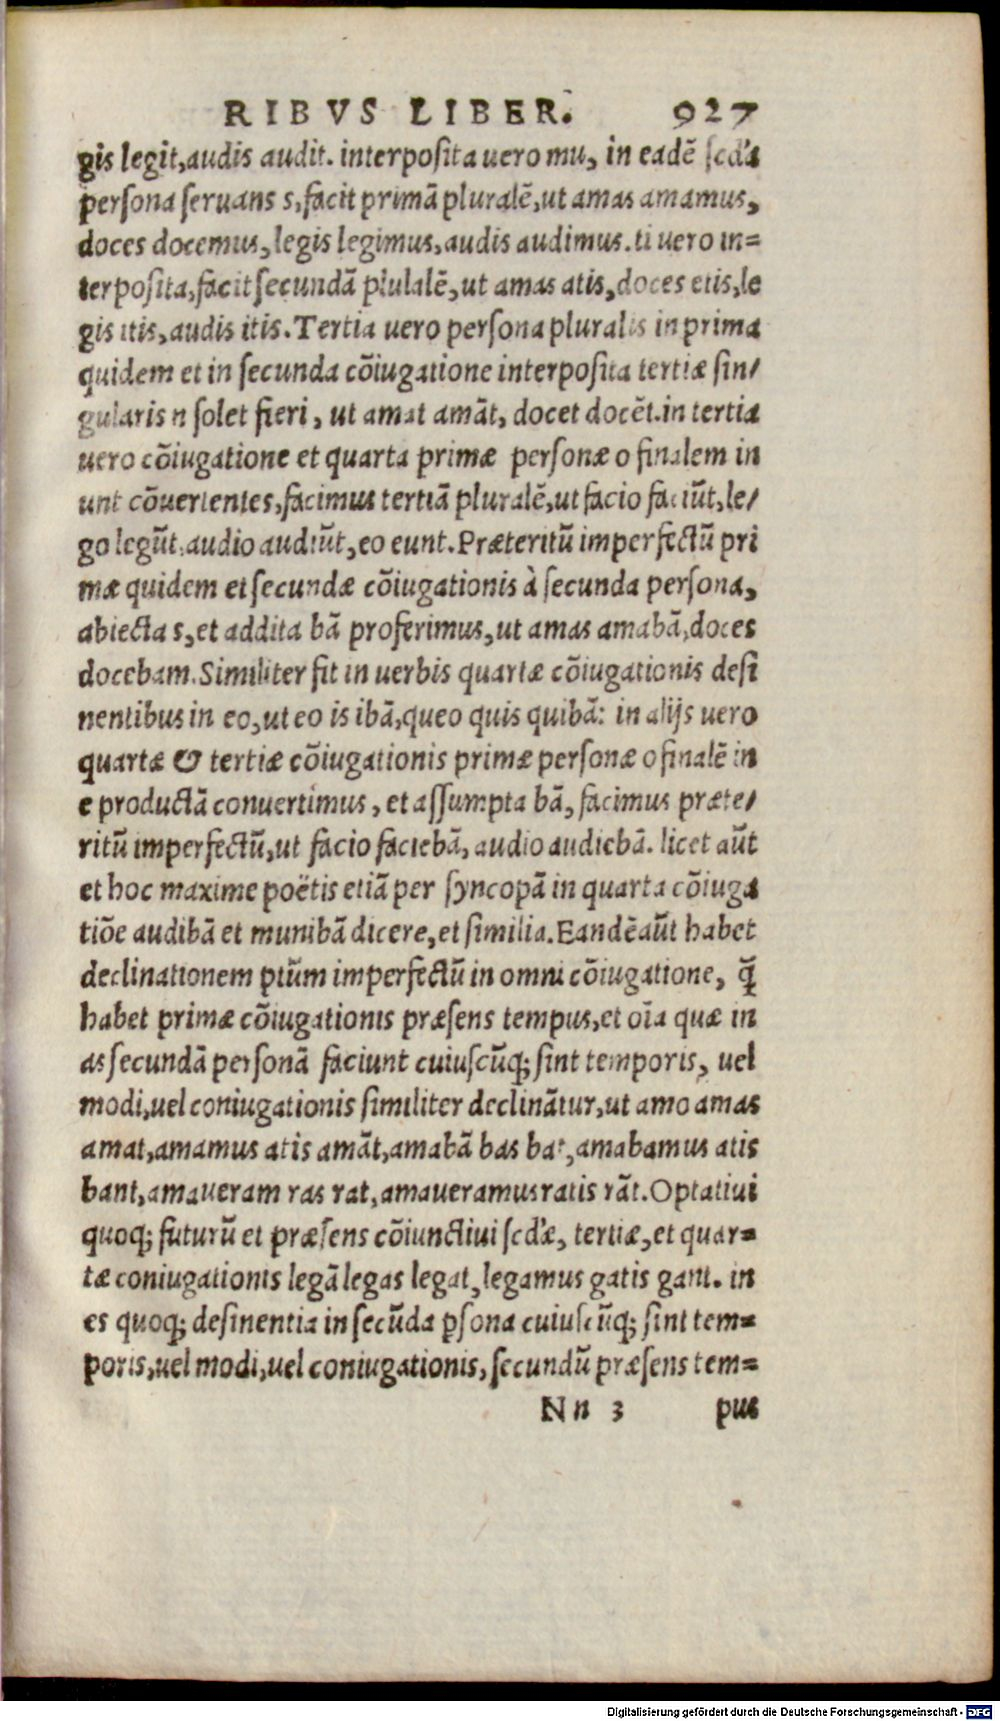 RIBVS LIBER. 927
gis legit, audis audit. interposita uero mu, in eadē scd'a
persona seruans s, facit primā pluralē, ut amas amamus,
doces docemus, legis legimus, audis audimus. ti uero in=
terposita, facit secundā plulalē, ut amas atis, doces etis, le
gis itis, audis itis. Tertia uero persona pluralis in prima
quidem et in secunda cōiugatione interposita tertiæ sin/
gularis n solet fieri, ut amat amāt, docet docēt. in tertia
uero cōiugatione et quarta primæ personæ o finalem in
unt cōuertentes, facimus tertiā pluralē, ut facio faciūt, le/
go legūt, audio audiūt, eo eunt. Præteritū imperfectū pri
mæ quidem et secundæ cōiugationis à secunda persona,
abiecta s, et addita bā proferimus, ut amas amabā, doces
docebam. Similiter fit in uerbis quartæ cōiugationis desi
nentibus in eo, ut eo is ibā, queo quis quibā: in alijs uero
quartæ & tertiæ cōiugationis primæ personæ o finalē in
e productā conuertimus, et assumpta bā, facimus præte/
ritū imperfectū, ut facio faciebā, audio audiebā. licet aūt
et hoc maxime poëtis etiā per syncopā in quarta cōiuga
tiōe audibā et munibā dicere, et similia. Eandē aūt habet
declinationem ptūm imperfectū in omni cōiugatione, q̄
habet primæ cōiugationis præsens tempus, et oīa quæ in
as secundā personā faciunt cuiuscūq; sint temporis, uel
modi, uel coniugationis similiter declinātur, ut amo amas
amat, amamus atis amāt, amabā bas bat, amabamus atis
bant, amaueram ras rat, amaueramus ratis rāt. Optatiui
quoq; futurū et præsens cōiunctiui scd'æ, tertiæ, et quar=
tæ coniugationis legā legas legat, legamus gatis gant. in
es quoq; desinentia in secūda ꝑsona cuiuscūq; sint tem=
poris, uel modi, uel coniugationis, secundū præsens tem=
Nn 3 pus
Digitalisierung gefördert durch die Deutsche Forschungsgemeinschaft - DFG